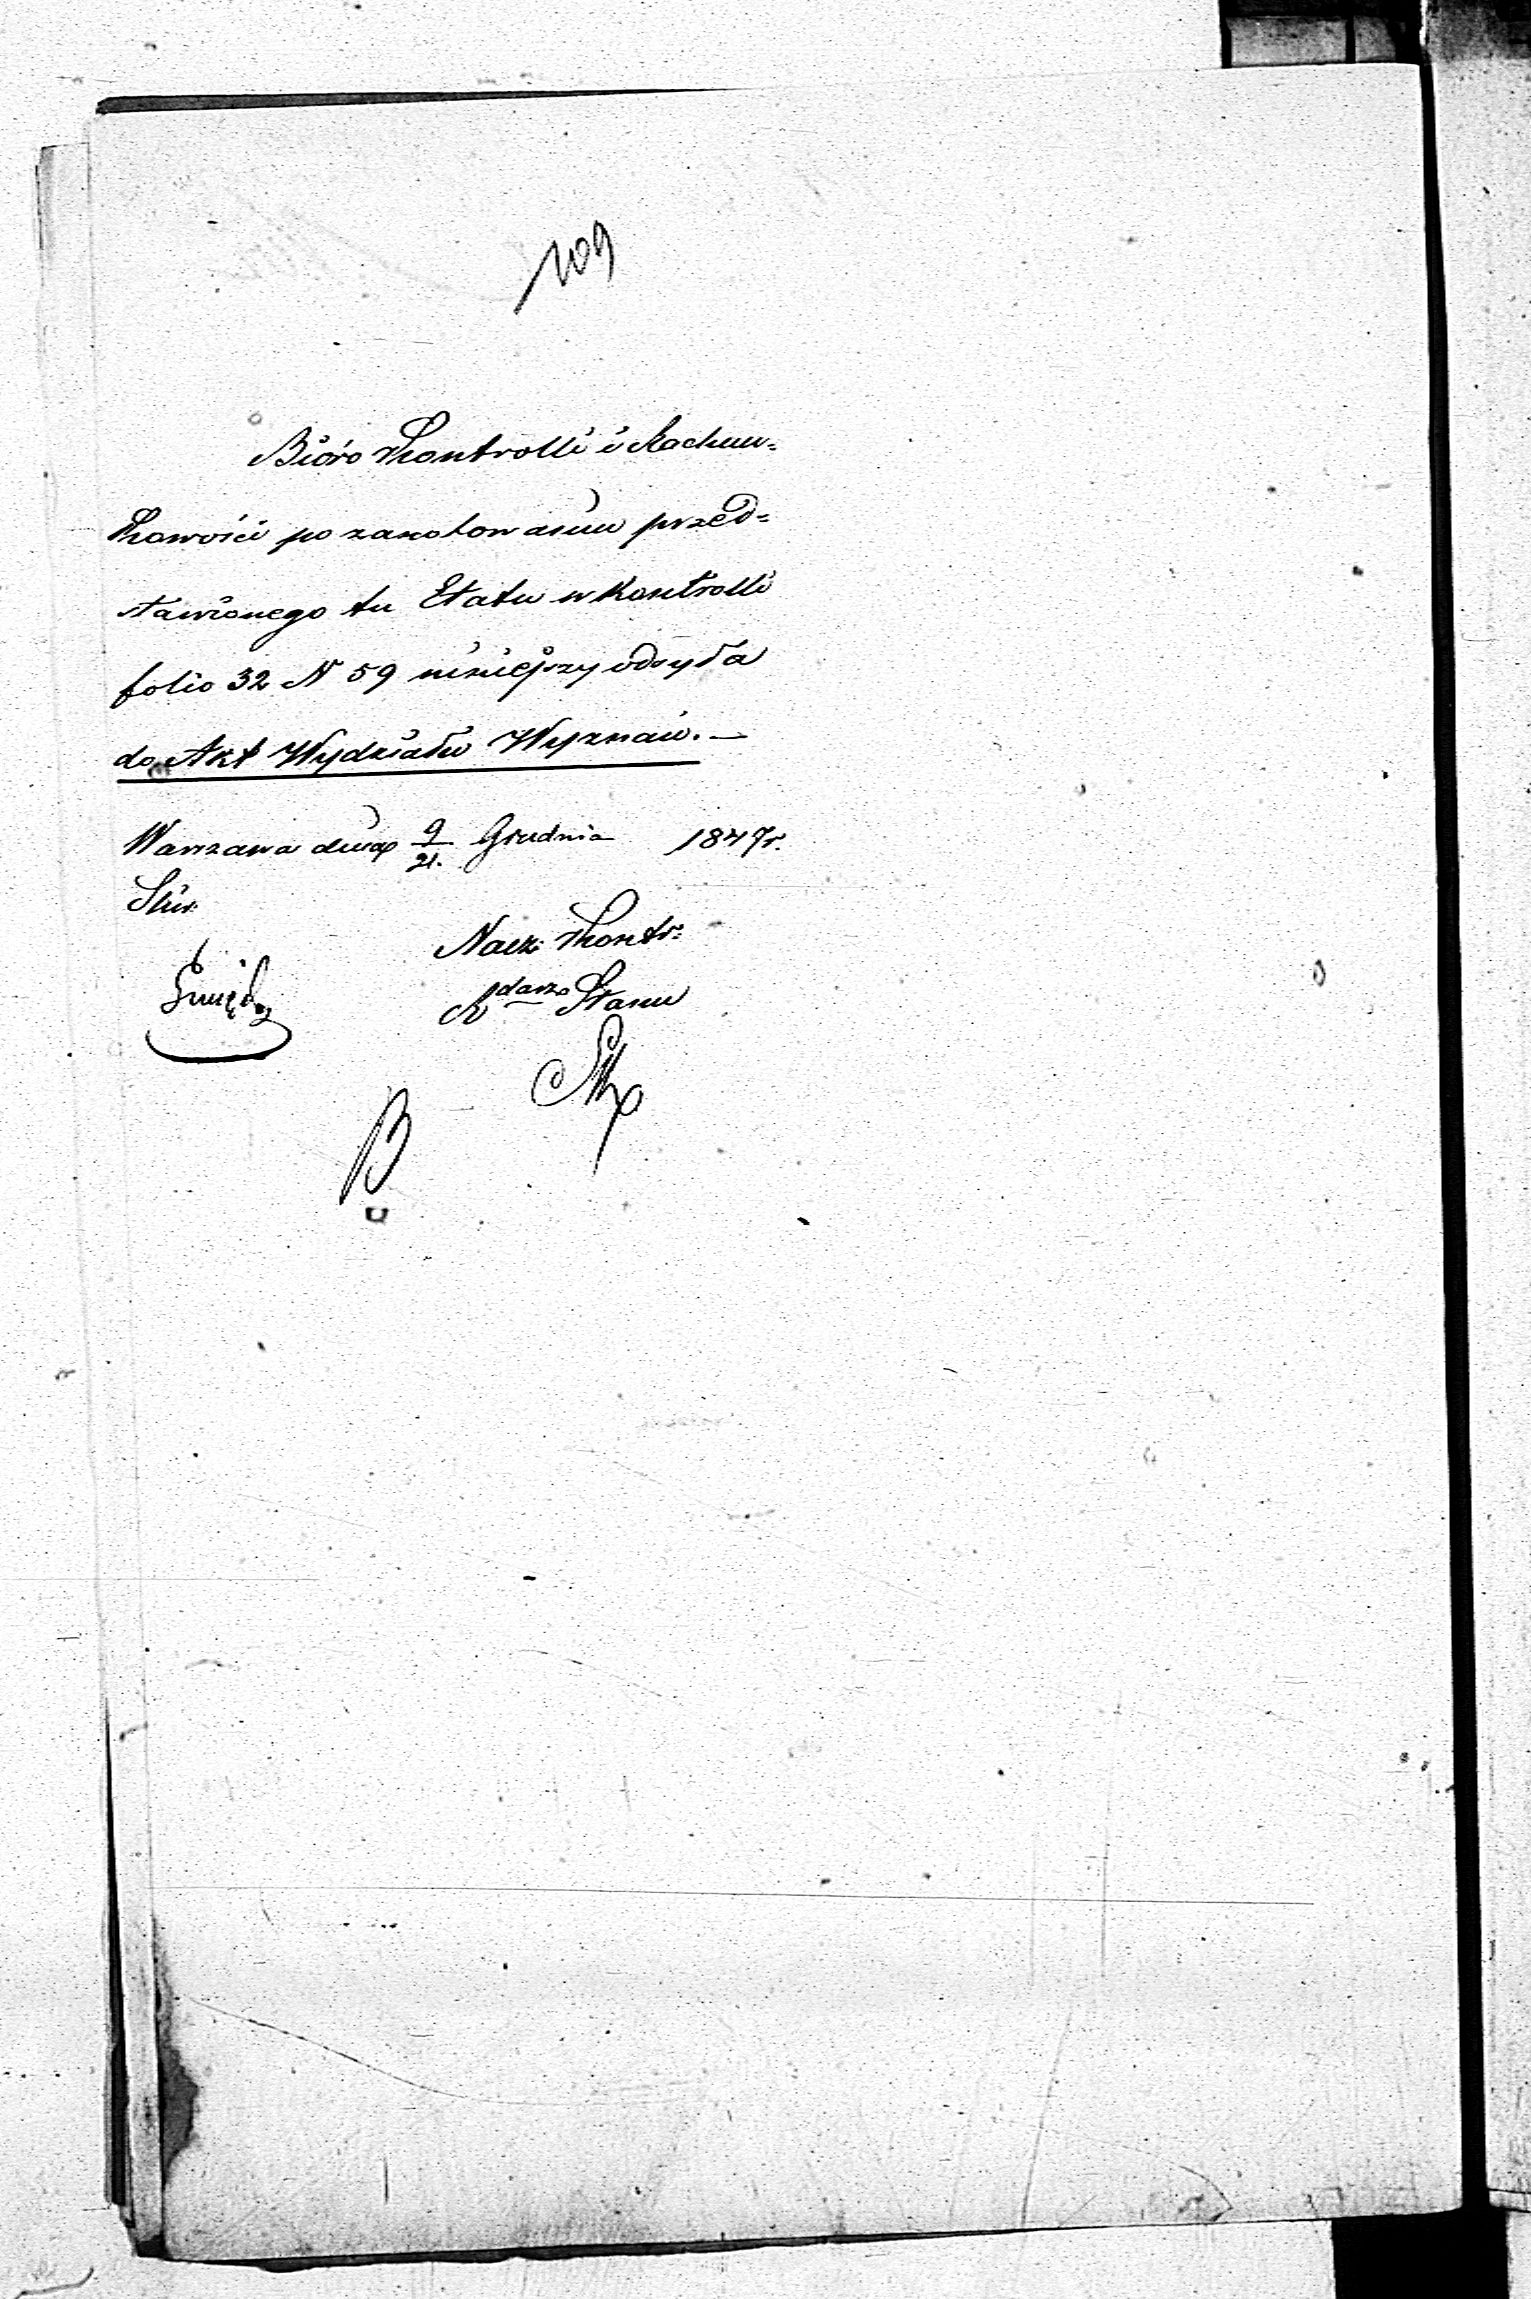 109
Bióro Kontrolli i Rachun=
kowości po zanotowaniu przed=
stawionego tu Etatu w Kontrolli
folio 32 N 59 niniejszy odsyła
do Akt Wydziału Wyznań. —
Warszawa dnia 9/21. Grudnia 1847 r.
Nacz: Kontr:
R darz Stanu
B